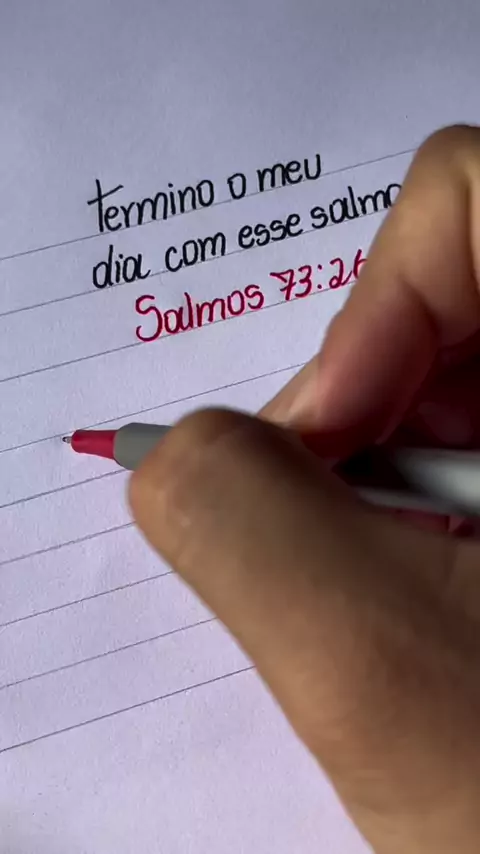 termino o meu
dia com esse salmo
Salmos 73:26